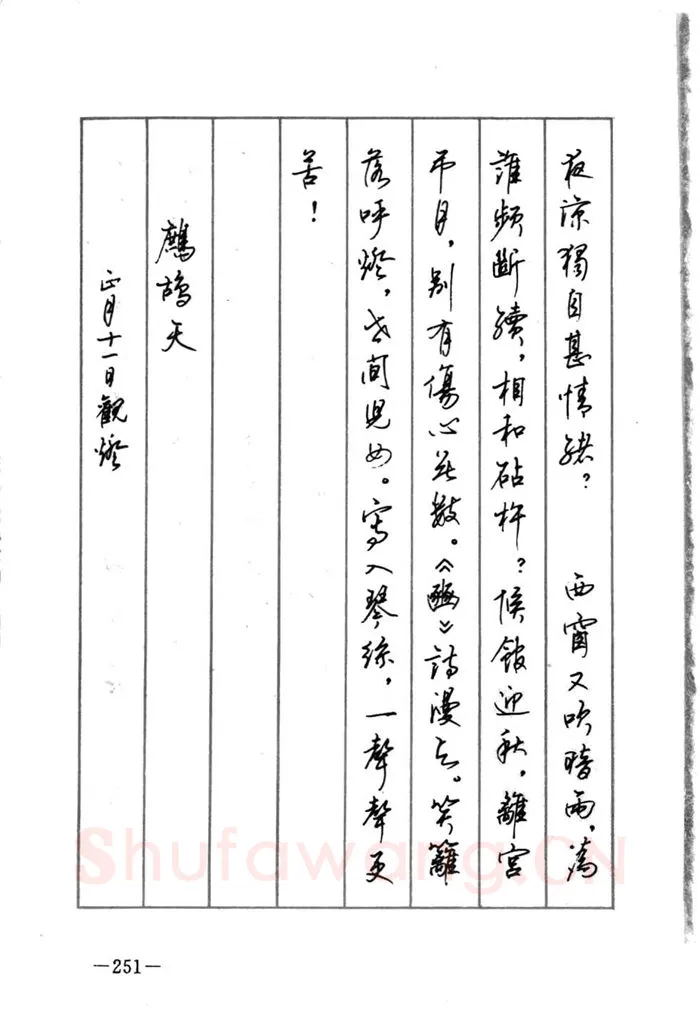 夜涼獨自甚情緒？ 西窗又吹暗雨，為
誰頻斷續，相和砧杵？候館迎秋，離宮
吊月，別有傷心無數。《豳》詩漫与。笑籬
落呼燈，世間兒女。寫入琴絲，一聲聲更
苦！
鷓鴣天
正月十一日觀燈
—251—
Shufawang.CN